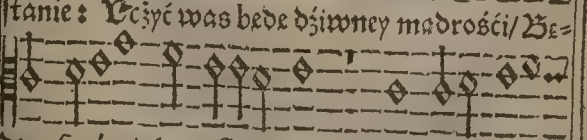 stanie: Vcżyć was będę dźiwney mądrośći/ Bę=